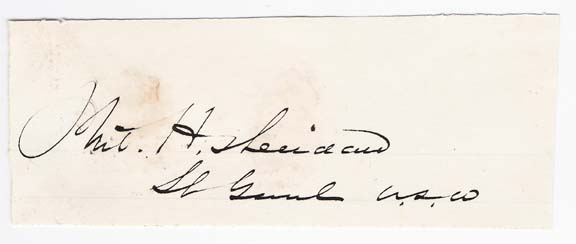 Phil. H. Sheridan
Lt Genl U.S.A